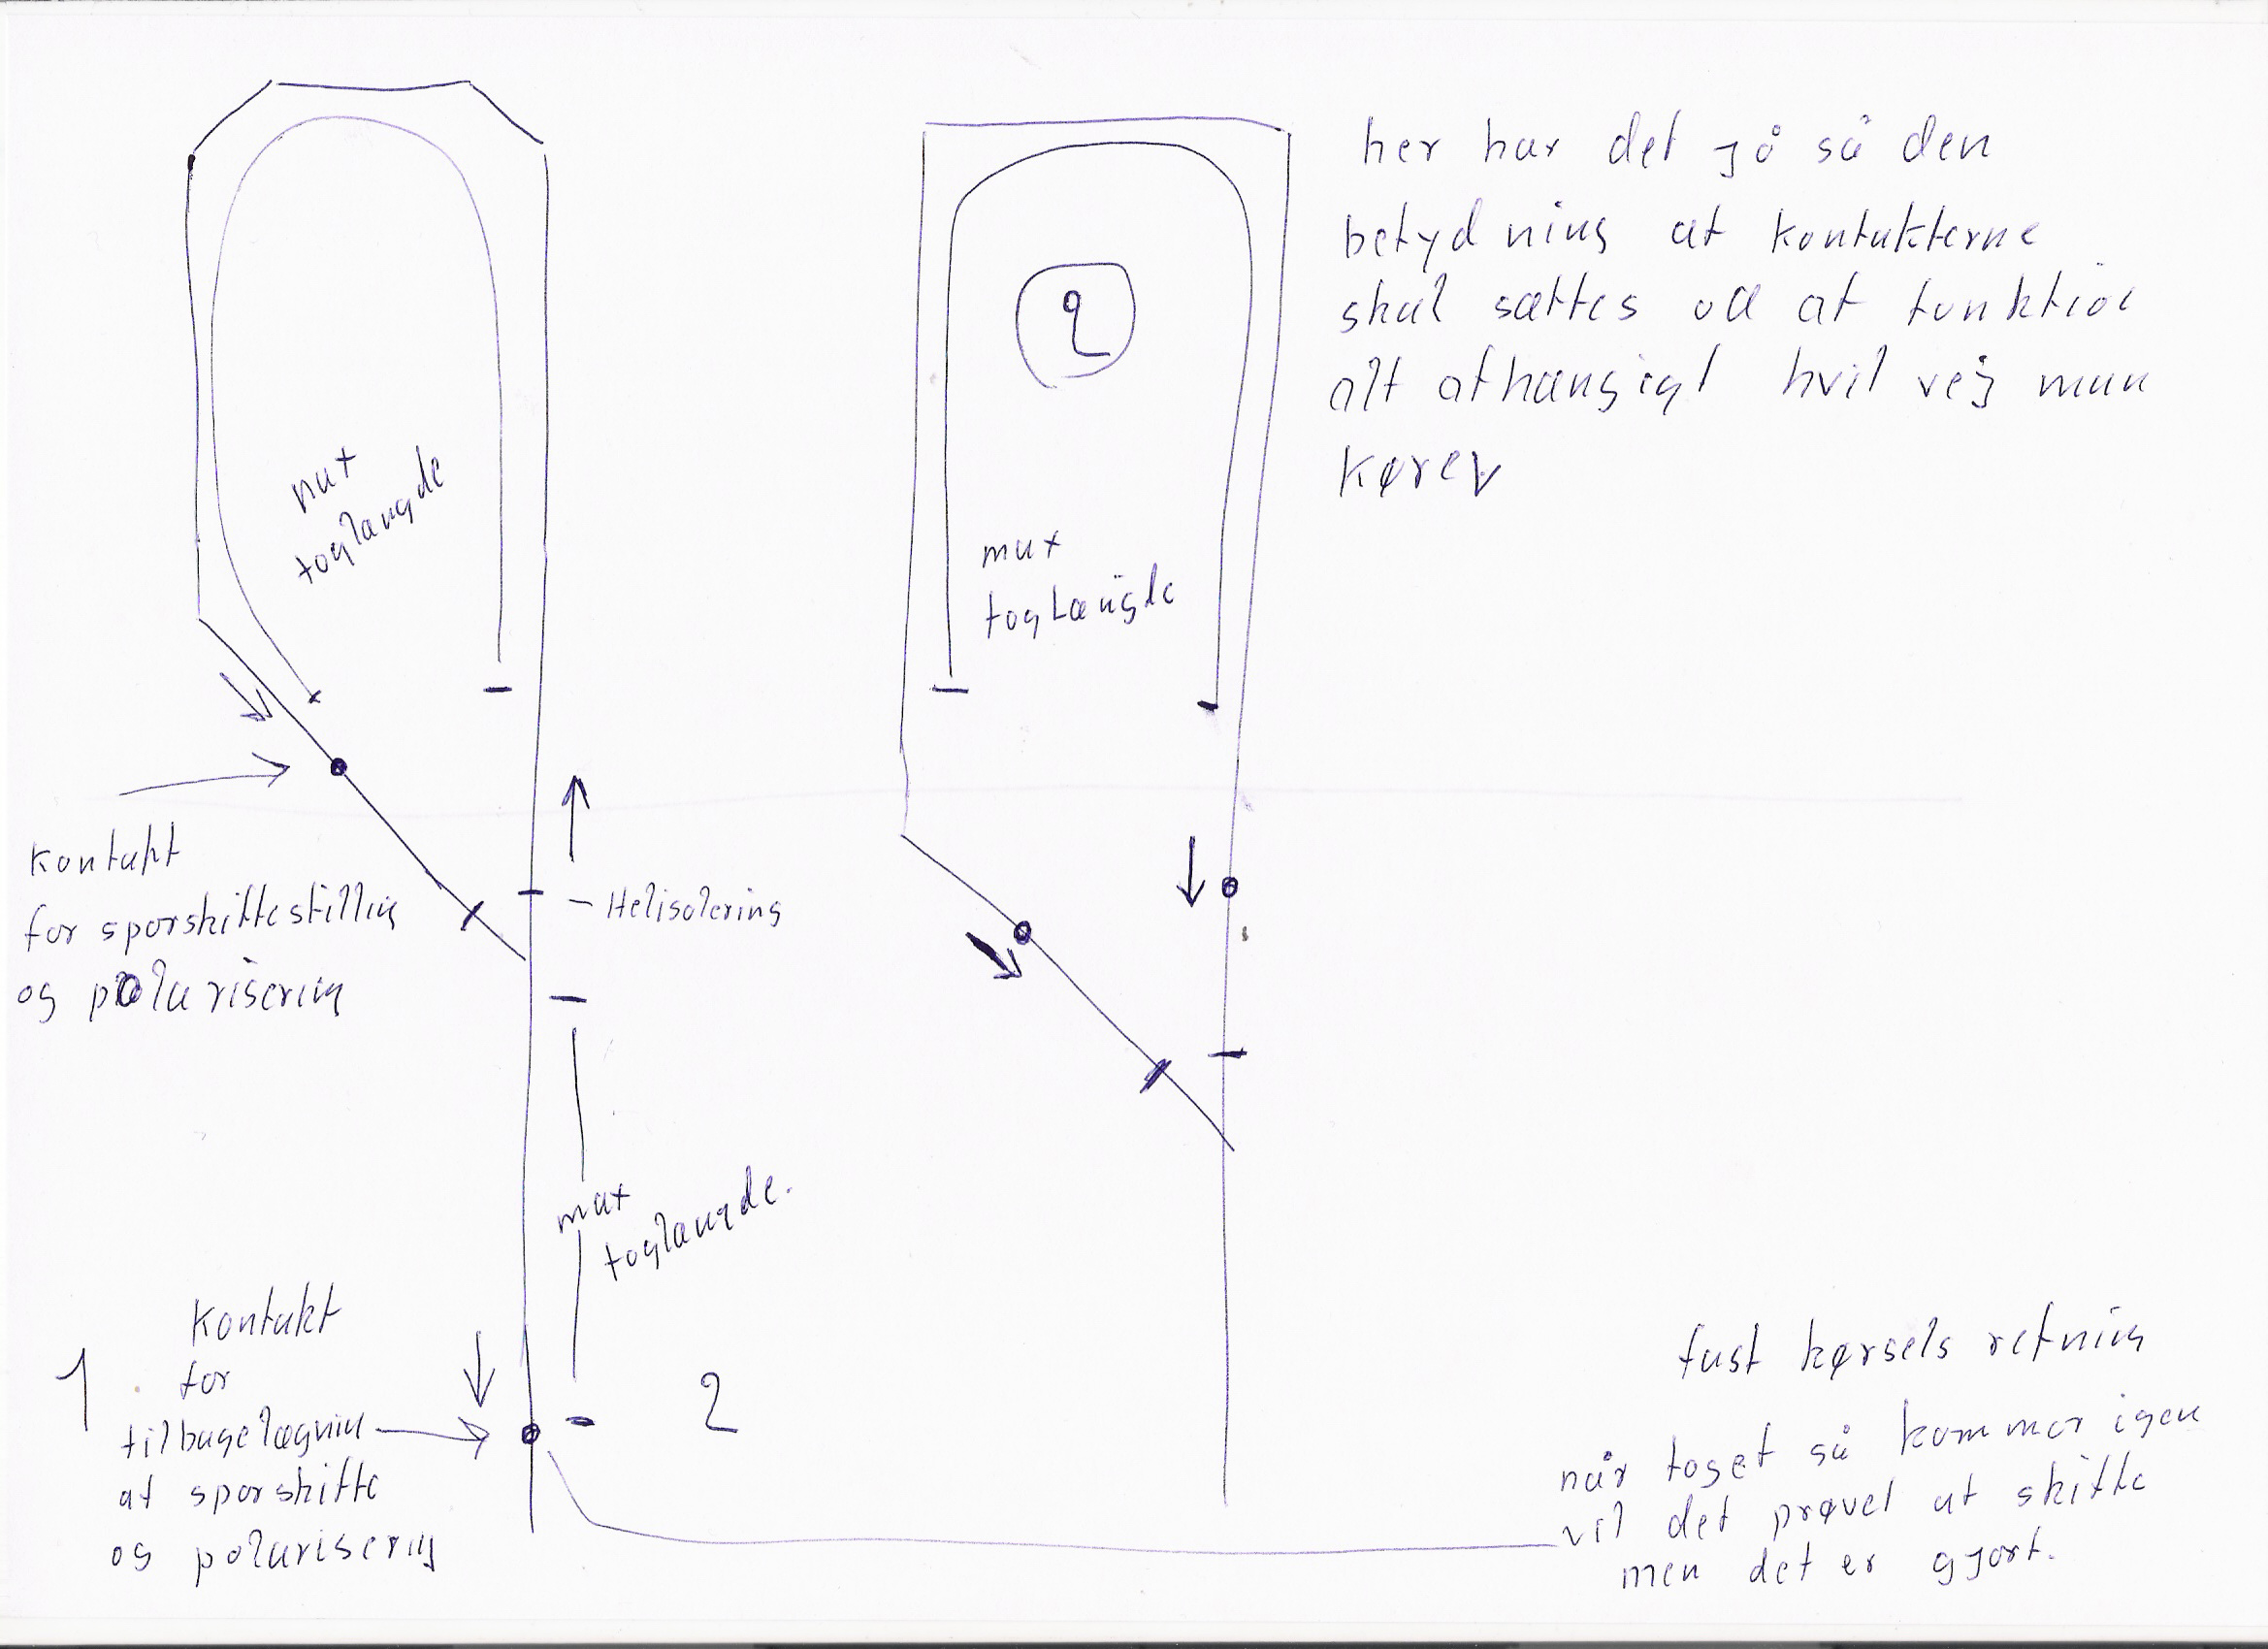 her har det jo så den
betydning at kontakterne
skal sættes
alt afhængigt hvil vej man
kører
max
toglængde
2
max
toglængde
Kontakt
for sporskiftestilling
og polarisering
- Helisolering
max
toglængde.
1
Kontakt
for
tilbagelægnin
af sporskifte
og polarisering
2
fast kørsels retning
når toget så kommer igen
vil det prøvel at skifte
men det er gjort.